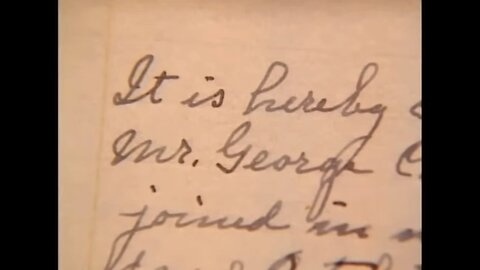 It is hereby
Mr. George
joined in